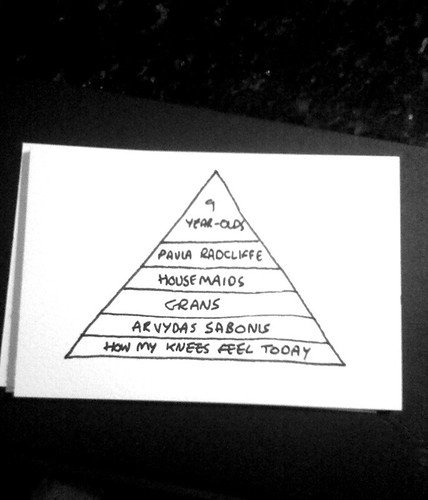 9
YEAR-OLDS
PAULA RADCLIFFE
HOUSEMAIDS
GRANS
ARVYDAS SABONIS
HOW MY KNEES FEEL TODAY